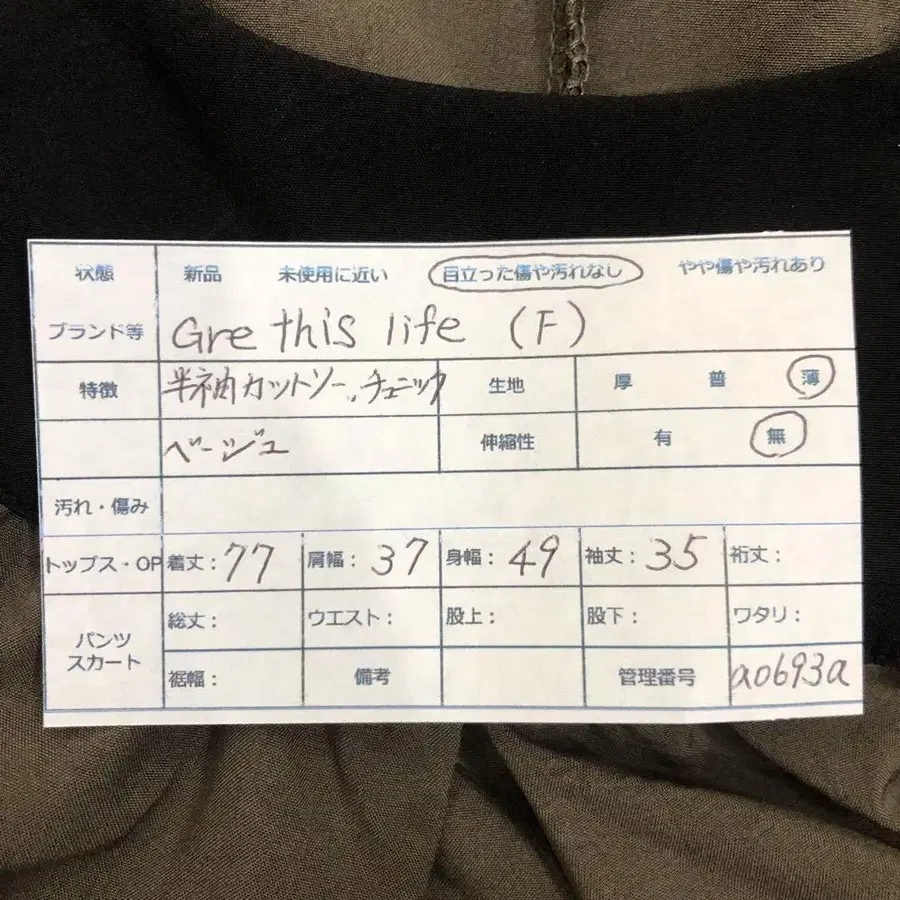 状態 新品 未使用に近い 目立った傷や汚れなし やや傷や汚れあり
ブランド等 Gre this life (F)
特徴 半袖カットソー、チュニック 生地 厚 普 薄
ベージュ 伸縮性 有 無
汚れ・傷み
トップス・OP 着丈：77 肩幅：37 身幅：49 袖丈：35 裄丈：
パンツ スカート 総丈： ウエスト： 股上： 股下： ワタリ：
裾幅： 備考 管理番号 a0693a